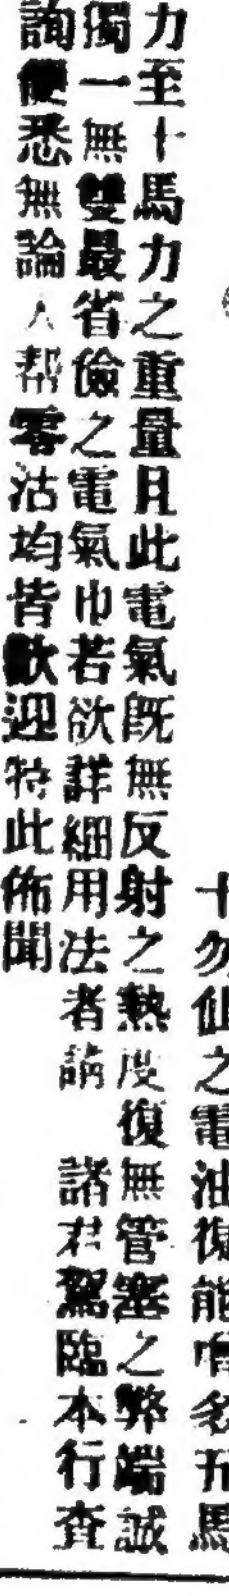 十勿仙之電油復能增多五馬
力至十馬力之重量且此電氣既無反射之熱度復無管塞之弊端誠
獨一無雙最省儉之電氣巾若欲詳細用法者請諸君駕臨本行查
詢便悉無論人幇零沽均皆歡迎特此佈聞